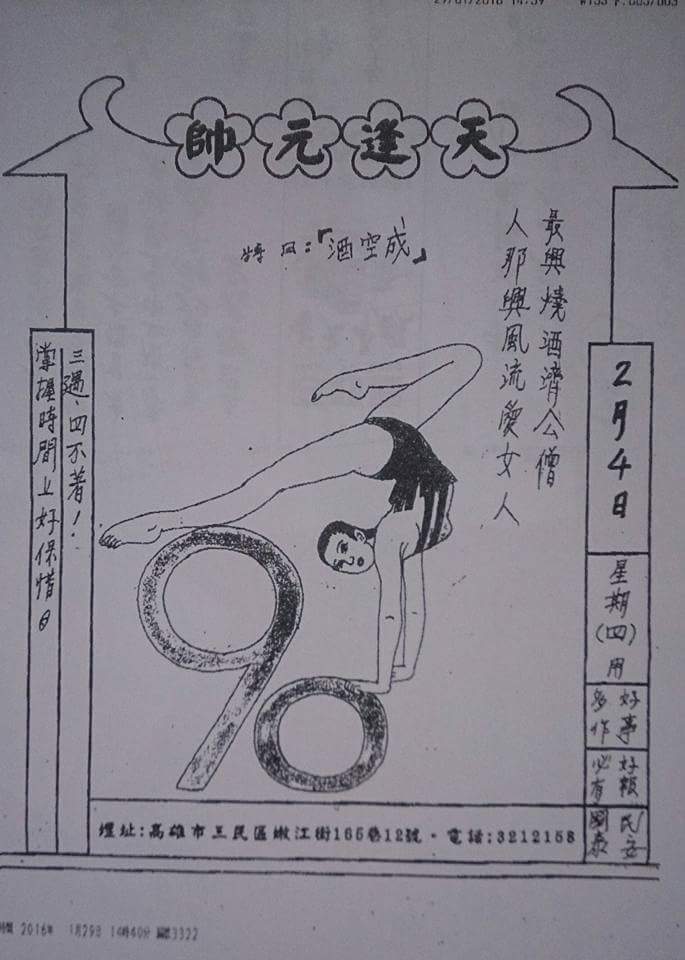 29/01/2016 14:39
天逢元帥
最興燒酒濟公僧
人那興風流愛女人
特囚:「酒空成」
2月4日
星期(四)用
好事多作
好報必有
民安國泰
三遇四不著!
掌握時間上好保惜。
90
壇址:高雄市三民區嫩江街165巷12號。電話:3212158
2016年 1月29日 14時40分 3322